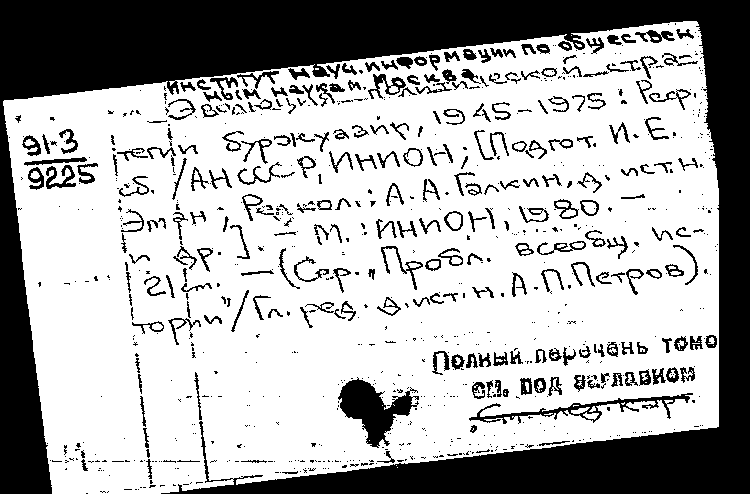 Институт науч. информации по обществен
ным наукам. Москва
Эволюция политической стра-
91-3
9225
тегии буржуазии, 1945-1975 : Реф.
сб. / АН СССР, ИНИОН; [Подгот. И. Е.
Эман; Редкол.: А. А. Галкин, д. ист. н.
и др.]. — М. : ИНИОН, 1980. —
21 см. — (Сер. „Пробл. всеобщ. ис-
тории" / Гл. ред. д. ист. н. А. П. Петров).
Полный перечень томо
см. под заглавием
Ст. след. карт.